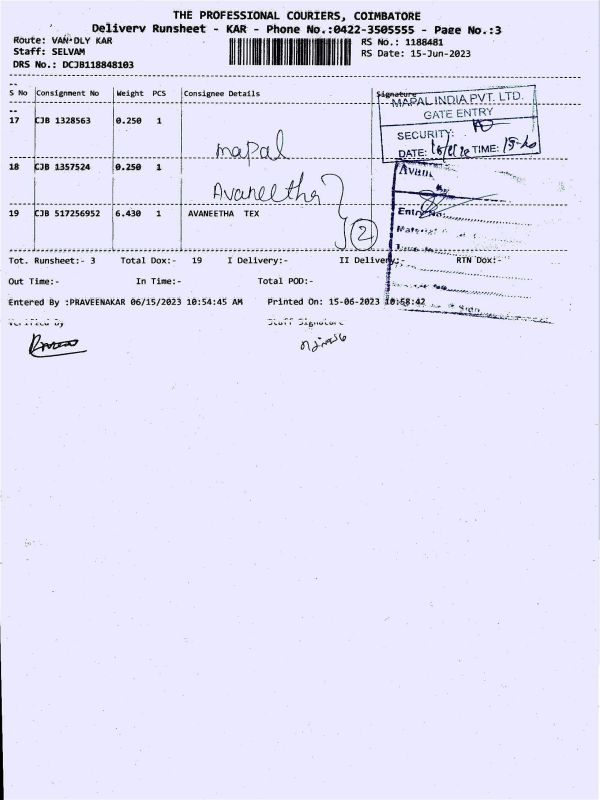 THE PROFESSIONAL COURIERS, COIMBATORE
Delivery Runsheet - KAR - Phone No.:0422-3505555 - Page No.:3
Route: VAN-DLY KAR
RS No.: 1188481
Staff: SELVAM
RS Date: 15-Jun-2023
DRS No.: DCJB118848103
S No Consignment No Weight PCS Consignee Details Signature
MAPAL INDIA PVT. LTD.
GATE ENTRY
17 CJB 1328563 0.250 1
SECURITY:
mapal
DATE: TIME:
18 CJB 1357524 0.250 1
Avaneetha
19 CJB 517256952 6.430 1 AVANEETHA TEX
Entry No:
2
Tot. Runsheet:- 3 Total Dox:- 19 I Delivery:- II Delivery:- RTN Dox:-
Out Time:- In Time:- Total POD:-
Entered By :PRAVEENAKAR 06/15/2023 10:54:45 AM Printed On: 15-06-2023 10:58:42
Verified By Staff Signature